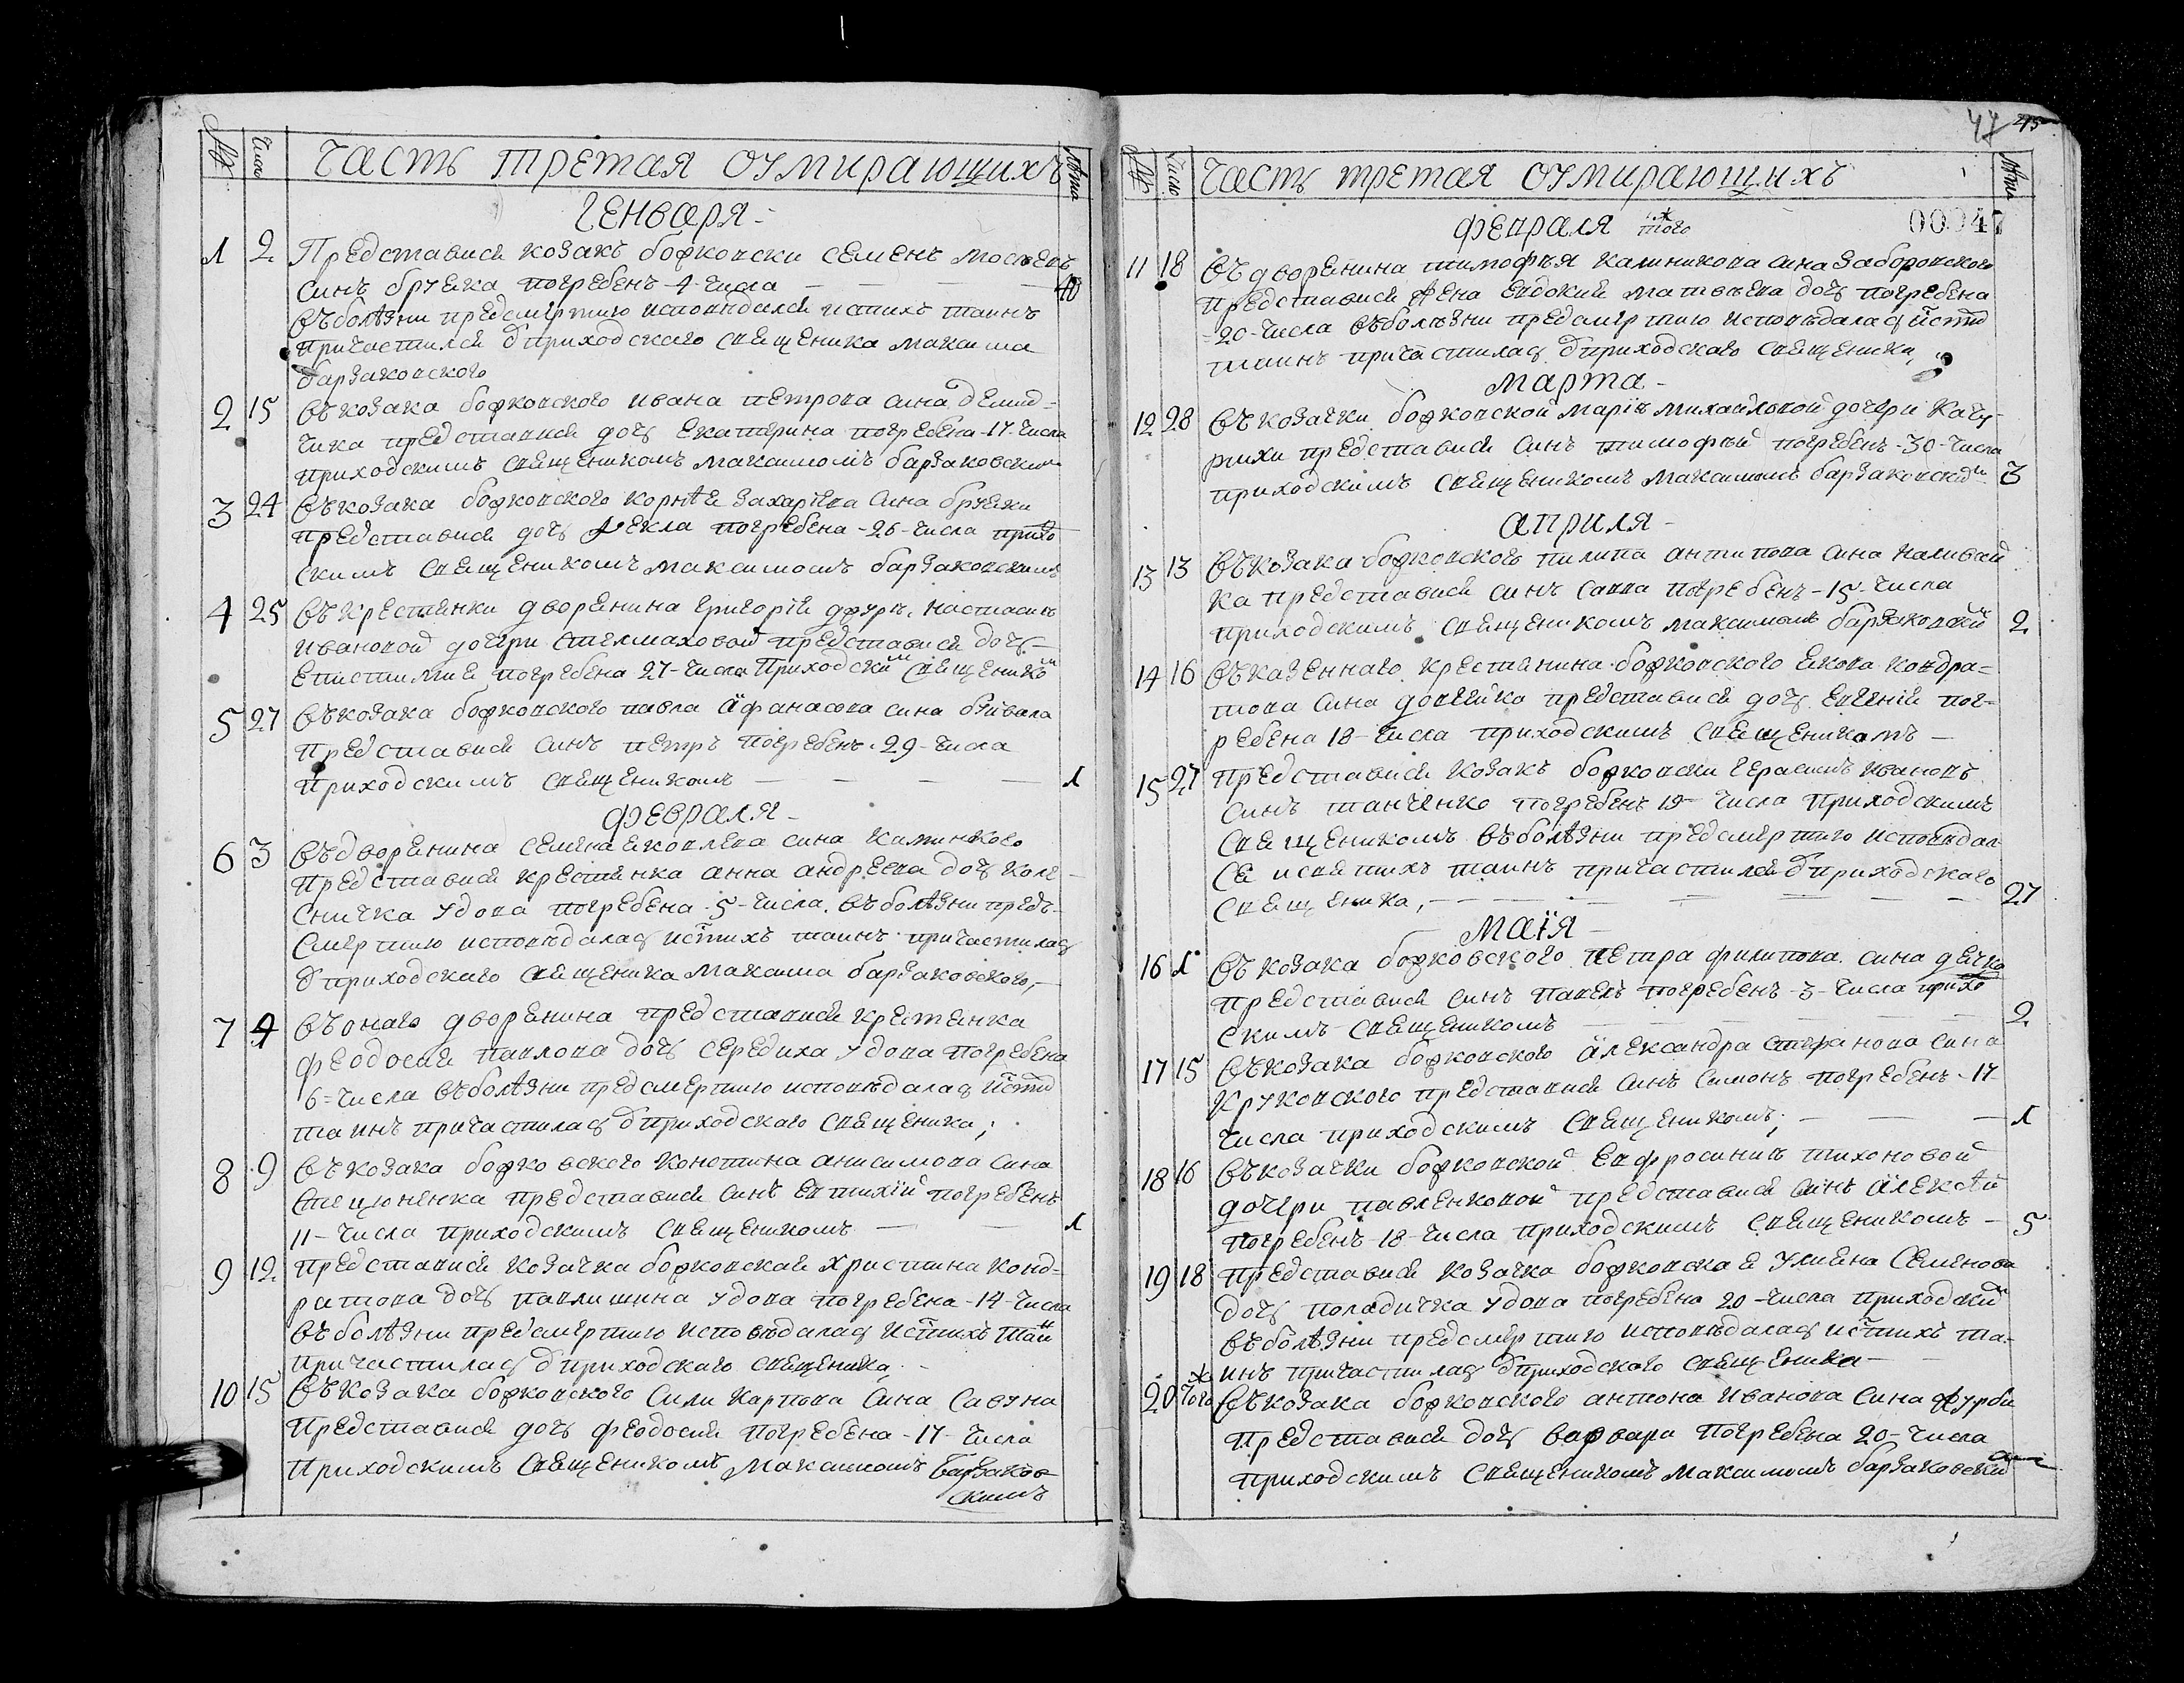 Часть третая оумирающихъ
Числ
Лѣта
Генваря
1 2 Представися козакъ божковски Семенъ Мосѣевъ
синъ брѵяка погребенъ 4 числа 40
въ болѣзни предсмертною исповѣдался истихъ таинъ
причастился ѿ приходскаго священика Максима
Барзаковского
2 15 въ козака божковского Ивана Петрова сина Демид-
чика представися дочъ Екатерина погребена 17 числа
приходскимъ священикомъ Максимомъ Барзаковским
3 24 въ козака божковского Корнѣя Захаріева сина брѵяки
представися дочъ Ѳекла погребена 26 числа прихо
скимъ священикомъ Максимомъ Барзаковскимъ
4 25 въ крестянки дворянина Григорія Настасіи
Ивановой дочери Стелмаховой представися дочъ
Епистимия погребена 27 числа приходским священиком
5 27 въ козака божковского Павла Афанасова сина
представися синъ Петръ погребенъ 29 числа
приходскимъ священикомъ 1
Февраля
6 3 въ дворянина Семена Яковлева сина Каминского
представися крестянка Анна Андреева дочъ Коле-
сничка удова погребена 5 числа въ болѣзни предъ-
смертною исповѣдалась истихъ таинъ причастилась
ѿ приходскаго священика Максима Барзаковского,
7 4 въ онаго дворянина представися крестянка
Феодосия Павлова дочъ Середиха удова погребена
6 числа въ болѣзни предсмертною исповѣдалась истих
таинъ причастилась ѿ приходскаго священика;
8 9 въ козака божковского Констина Анисимова сина
Стецюненка представися синъ Евтихій погребенъ
11 числа приходскимъ священикомъ 1
9 12 представися козачка божковская Христина Конд-
ратова дочъ Павлишина удова погребена 14 числа
въ болѣзни предсмертною исповѣдалась истихъ таин
причастилась ѿ приходскаго священика,
10 15 въ козака божковского Сили Карпова сина Савѵна
представися дочъ Феодосия погребена 17 числа
приходскимъ священикомъ Максимомъ Барзаков-
скимъ
47
Часть третая оумирающихъ
Число
Лѣта
00047
Февраля того
11 18 въ дворянина Тимофѣя Калиникова сина Заборовского
представися жена Евдокия Матвѣева дочъ погребена
20 числа въ болѣзни предсмертною исповѣдалась истих
таинъ причастилась ѿ приходскаго священика,
Марта
12 28 въ козачки божковской Маріи Михайловой дочери Качу-
рихи представися синъ Тимофѣй погребенъ 30 числа
приходскимъ священикомъ Максимомъ Барзаковским 3
Априля
13 13 въ козака божковского Пилипа Антипова сина Наливай
ка представися синъ Савва погребенъ 15 числа
приходскимъ священикомъ Максимомъ Барзаковским 2
14 16 въ казеннаго крестянина божковского Якова Кондра-
това сина Довгейка представися дочъ Евгенія пог-
ребена 18 числа приходскимъ священикомъ
15 27 представися козакъ божковски Герасимъ Ивановъ
синъ Танченко погребенъ 19 числа приходскимъ
священикомъ въ болѣзни предсмертною исповѣдал
ся исвятихъ таинъ причастился ѿ приходскаго
священика, 27
Маія
16 1 въ козака божковского Петра Филипова сина Дячка
представися синъ Павелъ погребенъ 3 числа прихо
скимъ священикомъ 2
17 15 въ козака божковского Александра Стефанова сина
Крѵковского представися синъ Симонъ погребенъ 17
числа приходскимъ священикомъ; 1
18 16 въ козачки божковской Евфросинии Тихоновой
дочери Павленковой представися синъ Алексѣй
погребенъ 18 числа приходскимъ священикомъ 5
19 18 представися козачка божковская Улияна Семенова
дочъ Поладичка удова погребена 20 числа приходским
въ болѣзни предсмертною исповѣдалась истихъ та-
инъ причастилась ѿ приходскаго священика
20 того въ козака божковского Антона Иванова сина Журби
представися дочъ Варвара погребена 20 числа
приходскимъ священикомъ Максимомъ Барзаковским